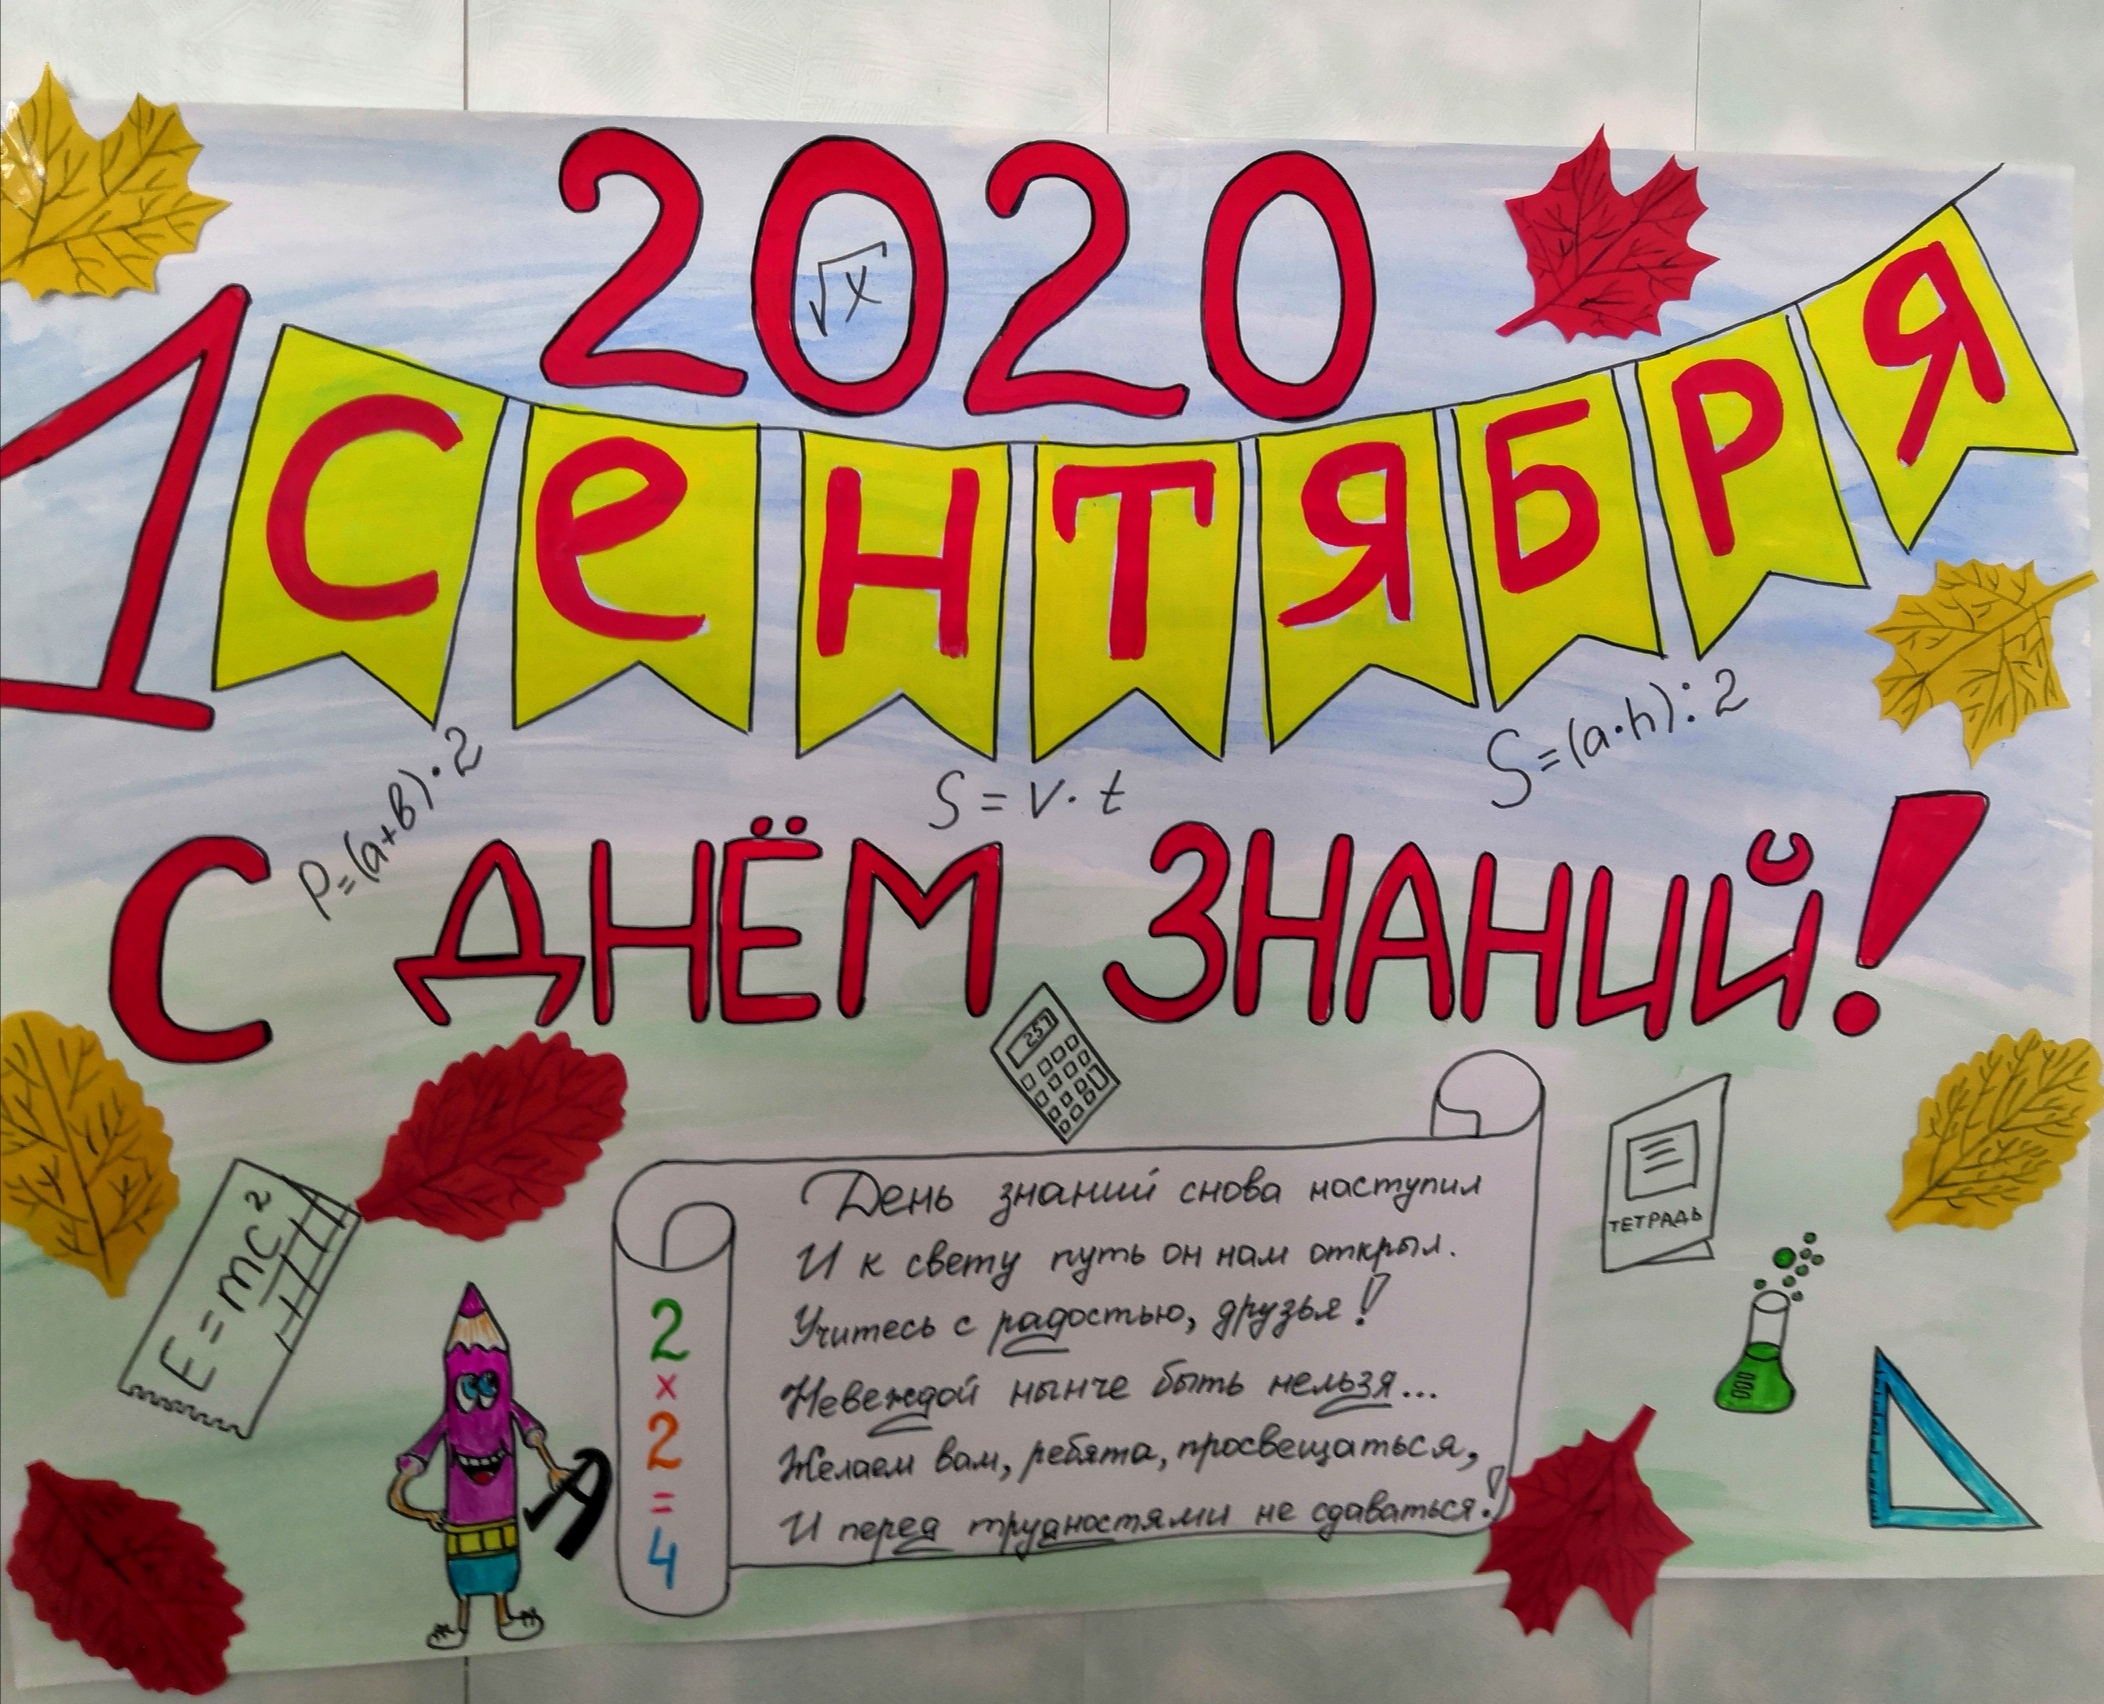 2020
√x
1 СеНТЯБРЯ
P=(a+b)·2
S=v·t
S=(a·h):2
С ДНЁМ ЗНАНИЙ!
257
E=mc²
ТЕТРАДЬ
А
2
×
2
=
4
День знаний снова наступил
И к свету путь он нам открыл.
Учитесь с радостью, друзья!
Невеждой нынче быть нельзя...
Желаем вам, ребята, просвещаться,
И перед трудностями не сдаваться!